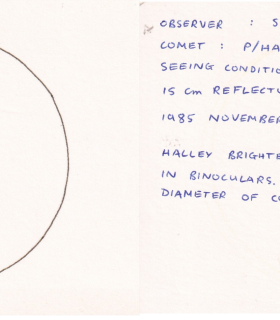 OBSERVER : S
COMET : P/HA
SEEING CONDITIO
15 cm REFLECTO
1985 NOVEMBER
HALLEY BRIGHTE
IN BINOCULARS.
DIAMETER OF CO